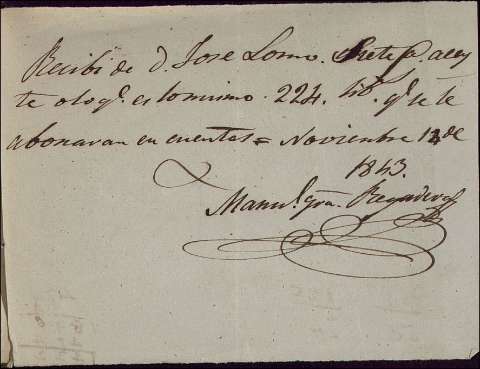 Recibi de D. Jose Lomo. Siete @. acey
te o lo q.e es lo mismo. 224. lib.s q.e se le
abonaran en cuentas = Noviembre 12 de
1843.
Manu.l Gra.